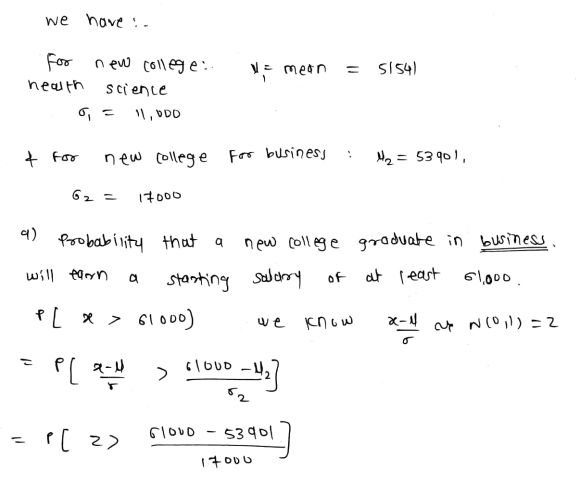 we have :-
For new college:. μ₁ = mean = 51541
health science
σ₁ = 11,000
& For new college For business : μ₂ = 53901,
σ₂ = 17000
a) Probability that a new college graduate in business.
will earn a starting salary of at least 61,000.
P[ x > 61000) we know x-μ/σ ~ N(0,1) = Z
= P[ x-μ/σ > 61000 - μ₂/σ₂]
= P[ Z > 61000 - 53901/17000]